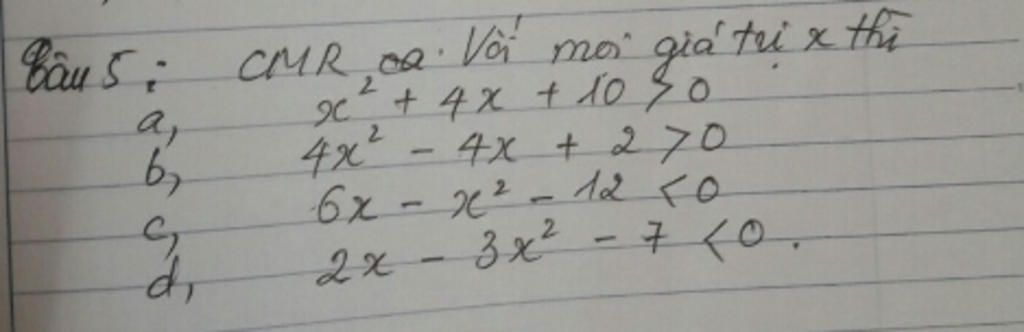 Câu 5: CMR, Với mọi giá trị x thì
a, x² + 4x + 10 > 0
b, 4x² - 4x + 2 > 0
c, 6x - x² - 12 < 0
d, 2x - 3x² - 7 < 0.